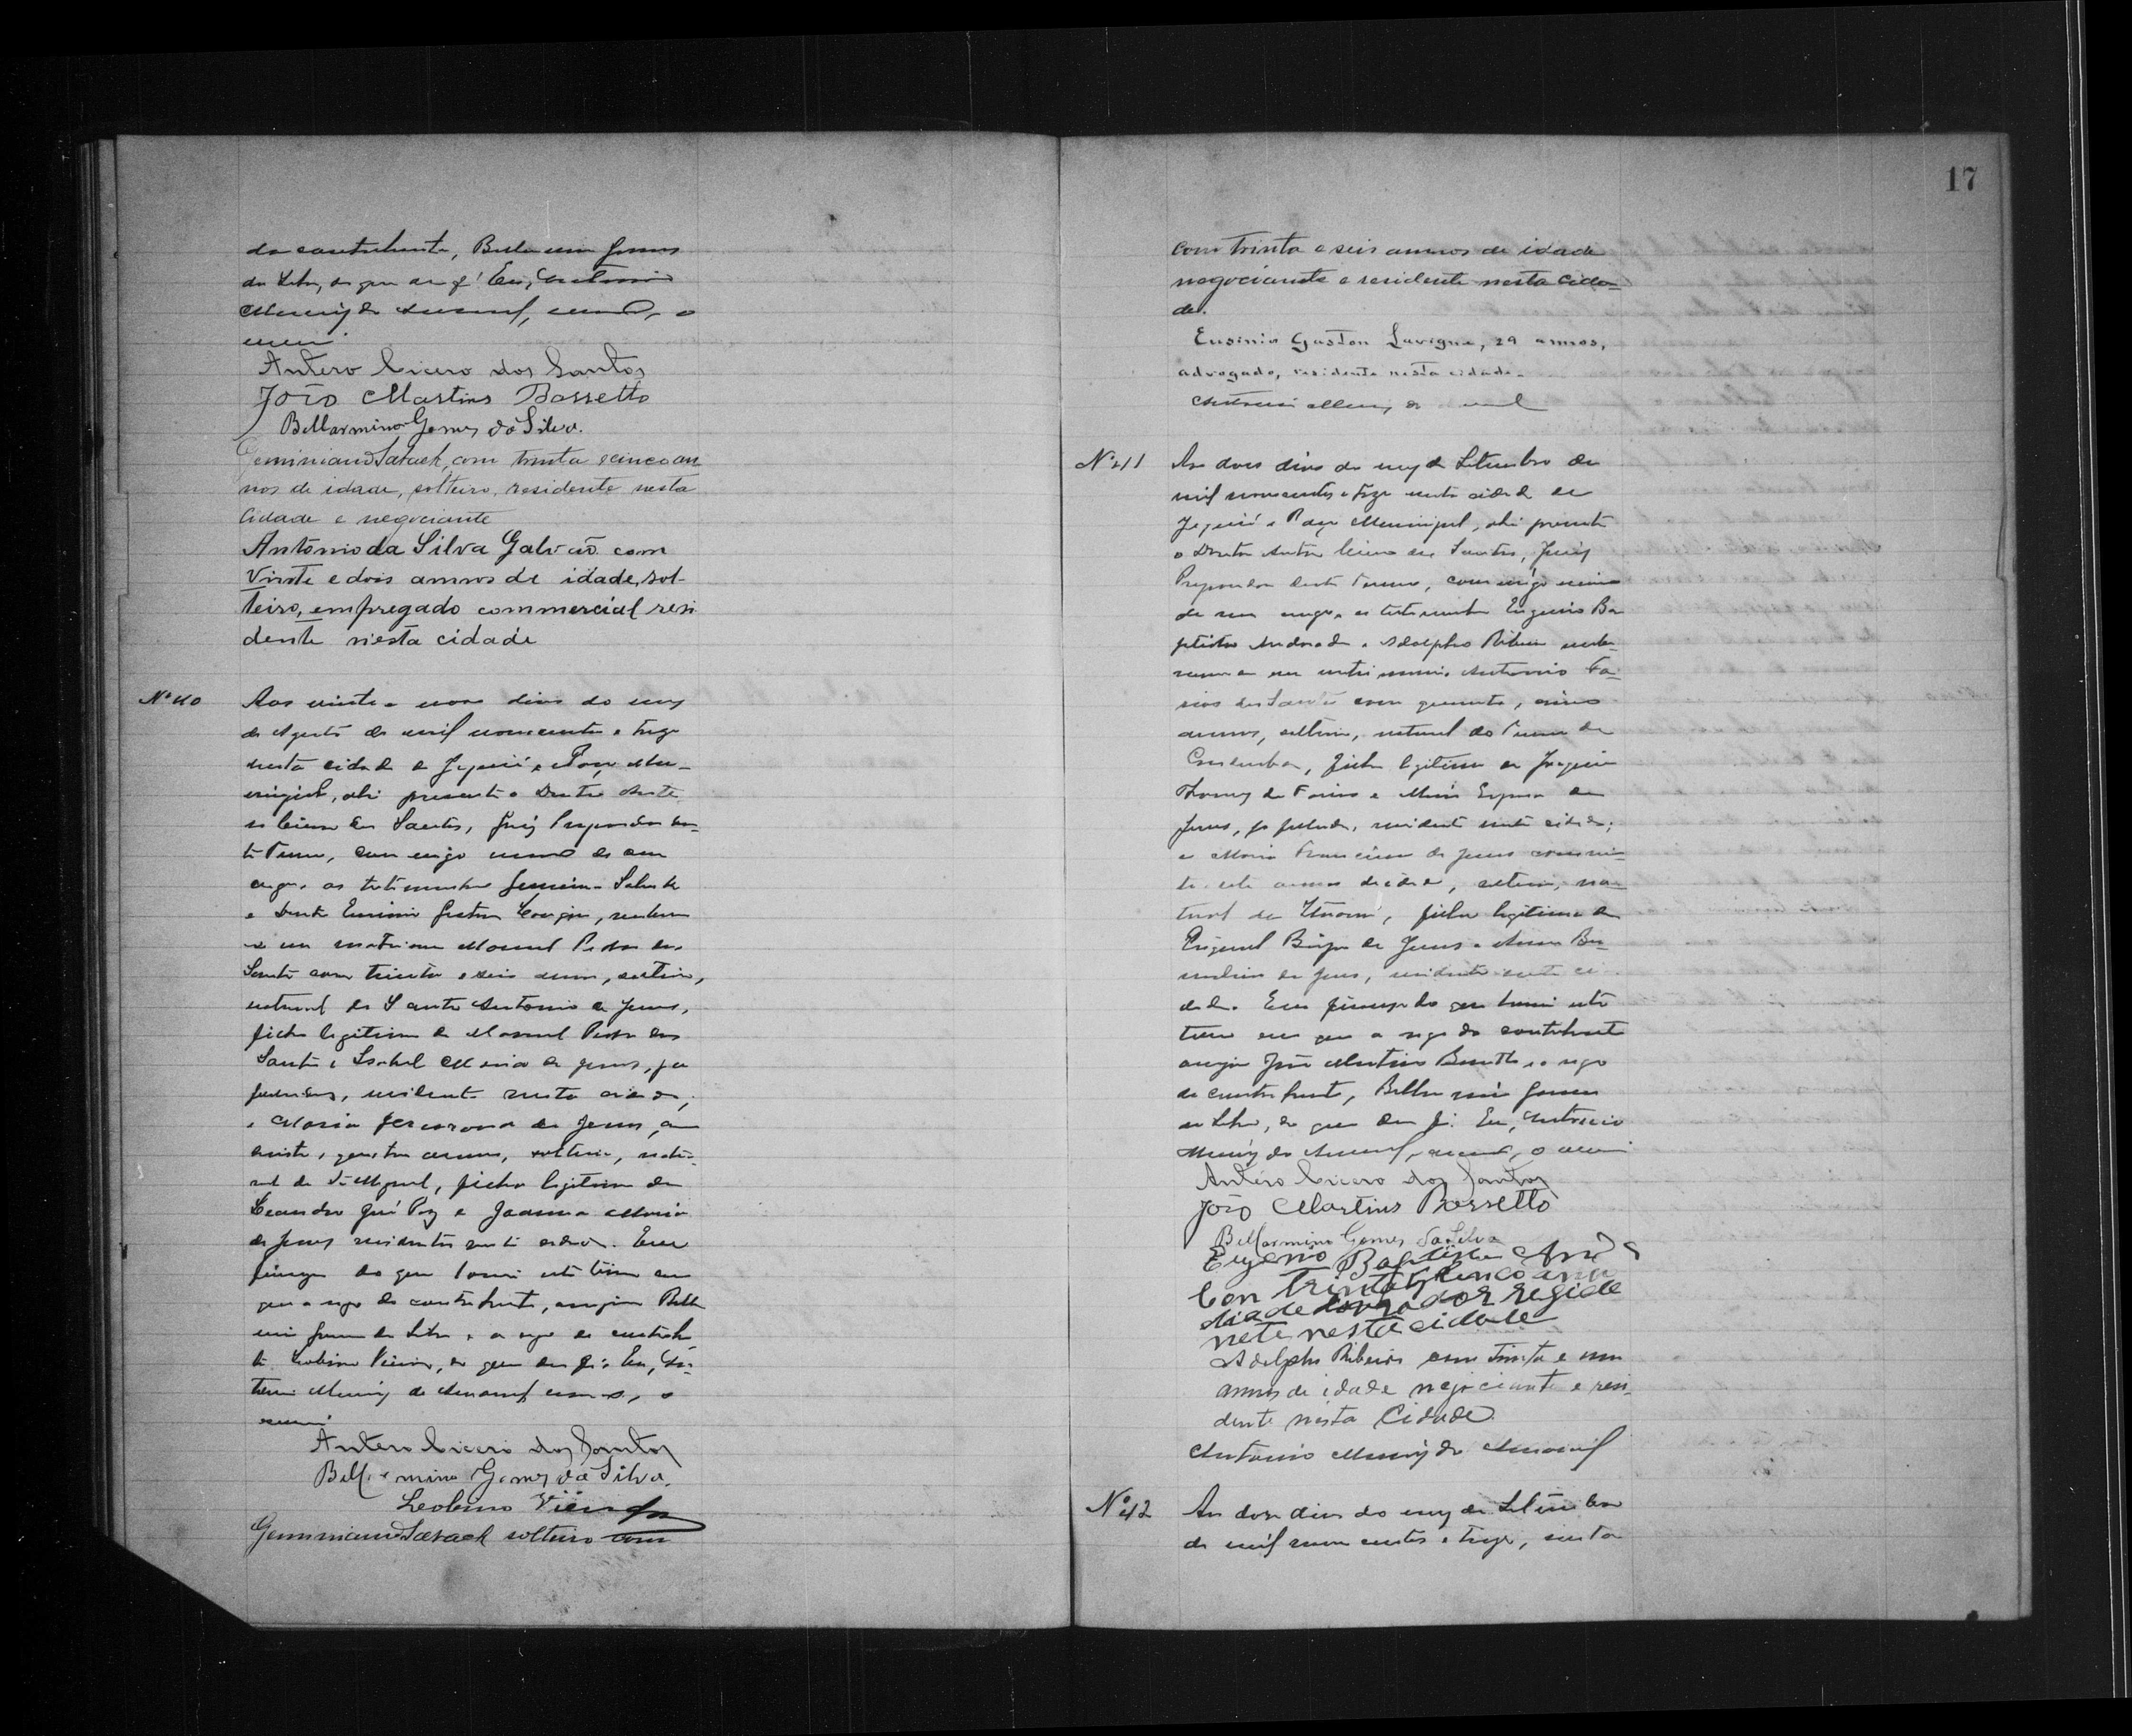 da contrahente, Bellarmino Gomes
da Silva, do que dou fé. Eu, Antonio
Muniz do Amaral, escrivão, o
escrevi.
Antero Cicero dos Santos
João Martins Bossetto
Bellarmino Gomes da Silva.
Geminiano Saback, com trinta e cinco an
nos de idade, solteiro, residente nesta
Cidade e negociante
Antonio da Silva Galvão com
Vinte e dois annos de idade, sol-
teiro, empregado commercial resi
dente n'esta cidade
Nº 40
Aos vinte e nove dias do mez
de Agosto de mil novecentos e treze
nesta cidade de Jequié e Paço Mu-
nicipal, ahi presente o Doutor Ante
ro Cicero dos Santos, Juiz Preparador des-
te Termo, commigo escrivão de seu
cargo e as testemunhas Geminiano Saback
e Doutor Eusinio Gaston Lavigne, receberam
se em matrimonio Manoel Pedro dos
Santos com trinta e seis annos, solteiro,
natural de Santo Antonio de Jesus,
filho legitimo de Manoel Pedro dos
Santos e Isabel Maria de Jesus, ja
fallecidos, residente nesta cidade;
e Maria de Jesus, com
vinte e quatro annos, solteira, natu-
ral de S. Miguel, filha legitima de
Leandro José Paz e Joanna Maria
de Jesus residentes nesta cidade. Em
firmeza do que lavrei este termo em
que a rogo do contrahente, assigna Bellar
mino Gomes da Silva e a rogo da contrahen
te Leobino Vieira, do que dou fé. Eu, An-
tonio Muniz do Amaral escrivão, o
escrevi.
Antero Cicero dos Santos
Bellarmino Gomes da Silva.
Leobino Vieira
Geminiano Saback solteiro com
17
com trinta e seis annos de idade
negociante e residente nesta cida-
de.
Eusinio Gaston Lavigne, 29 annos,
advogado, residente nesta cidade.
Antonio Muniz do Amaral
Nº 41
Aos dois dias do mez de Setembro de
mil novecentos e treze nesta cidade de
Jequié e Paço Municipal, ahi presente
o Doutor Antero Cicero dos Santos, Juiz
Preparador deste Termo, commigo escrivão
de seu cargo e as testemunhas Eugenio Ba
ptista Andrade e Adolpho Ribeiro recebe-
ram se em matrimonio Antonio Fa-
rias dos Santos com quarenta e cinco
annos, solteiro, natural do Termo de
filho legitimo de Joaquim
Thomaz de Farias e Maria de
Jesus, ja fallecidos, residente nesta cidade;
e Maria Francisca de Jesus com vin-
te e sete annos de idade, solteira, na-
tural de filha legitima de
de Jesus e Anna
de Jesus, residente nesta ci
dade. Em firmeza do que lavrei este
termo em que a rogo do contrahente
assigna João Martins Bossetto e a rogo
da contrahente, Bellarmino Gomes
da Silva, do que dou fé. Eu, Antonio
Muniz do Amaral, escrivão, o escrevi
Antero Cicero dos Santos
João Martins Bossetto
Bellarmino Gomes da Silva
Eugenio Baptista
Con trinta cinco annu
didade residé
nete nesta cidade
Adolpho Ribeiro com trinta e um
annos de idade negociante e resi-
dente nésta Cidade.
Antonio Muniz do Amaral
Nº 42
Aos doze dias do mez de Setembro
de mil novecentos e treze, nesta